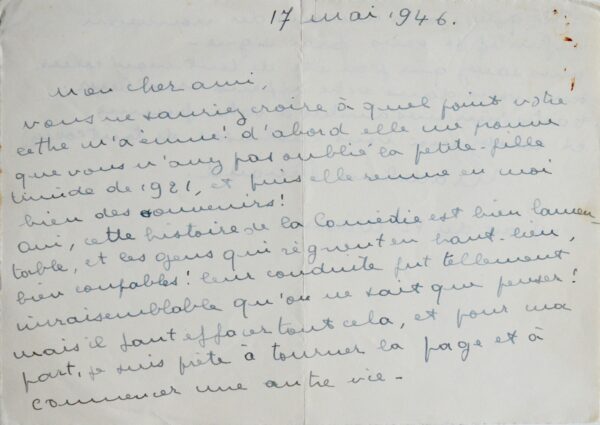 17 mai 1946.
Mon cher ami,
vous ne sauriez croire à quel point votre
lettre m'a émue! d'abord elle me prouve
que vous n'avez pas oublié la petite fille
timide de 1921, et puis elle remue en moi
bien des souvenirs!
oui, cette histoire de la Comédie est bien lamen-
table, et les gens qui règnent en haut-lieu,
bien coupables! leur conduite fut tellement
invraisemblable qu'on ne sait que penser!
mais il faut effacer tout cela, et pour ma
part, je suis prête à tourner la page et à
commencer une autre vie -